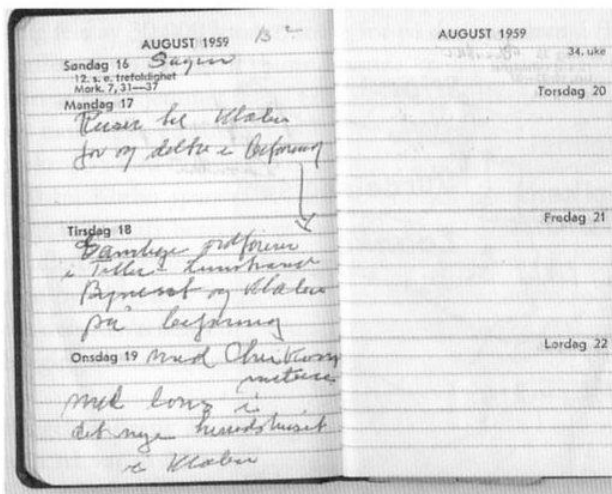 AUGUST 1959
13
Søndag 16
12. s. e. trefoldighet
Mark. 7, 31—37
Mandag 17
Reiser til Klæbu
for og delta i befaring
Tirsdag 18
Samtlige ordførere
i Tiller
Byneset og Klæbu
på befaring
Onsdag 19 med
med i
det nye herredshuset
i Klæbu
AUGUST 1959
34. uke
Torsdag 20
Fredag 21
Lørdag 22